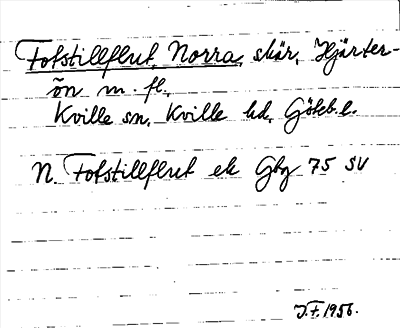 Fotstillflut, Norra, skär, Hjärter-
ön m. fl.
Kville sn, Kville hd, Göteb. l.
N. Fotstillflut ek Gbg 75 SV
J.F. 1956.